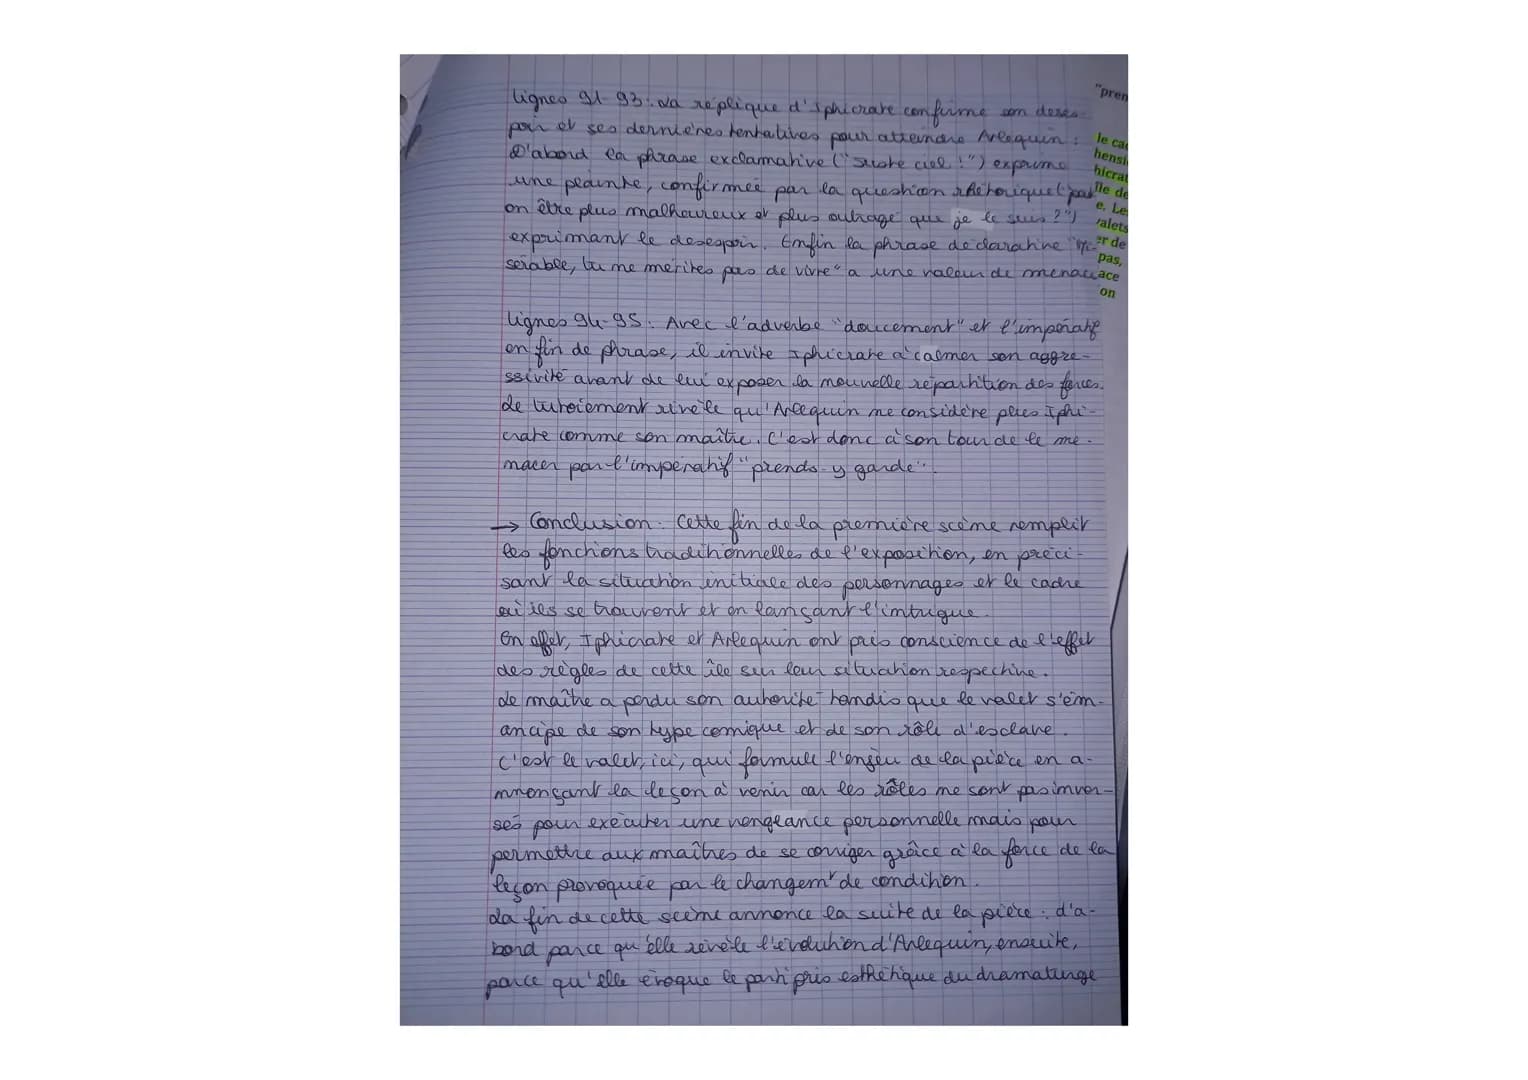 lignes 91-93: La réplique d'Iphicrate confirme son déses-
poir et ses dernières tentatives pour atteindre Arlequin :
D'abord la phrase exclamative ("Juste ciel !") exprime
une plainte, confirmée par la question rhétorique ("peut
on être plus malheureux et plus outragé que je le suis ?")
exprimant le désespoir. Enfin la phrase déclarative "Mi-
sérable, tu ne mérites pas de vivre" a une valeur de menace
lignes 94-95: Avec l'adverbe "doucement" et l'impératif
en fin de phrase, il invite Iphicrate à calmer son aggre-
ssivité avant de lui exposer la nouvelle répartition des forces.
Le tutoiement révèle qu'Arlequin ne considère plus Iphi-
crate comme son maître. C'est donc à son tour de le me-
nacer par l'impératif "prends-y garde".
→ Conclusion: Cette fin de la première scène remplit
les fonctions traditionnelles de l'exposition, en préci-
sant la situation initiale des personnages et le cadre
où ils se trouvent et en lançant l'intrigue.
En effet, Iphicrate et Arlequin ont pris conscience de l'effet
des règles de cette île sur leur situation respective.
Le maître a perdu son autorité tandis que le valet s'ém-
ancipe de son type comique et de son rôle d'esclave.
C'est le valet, ici, qui formule l'enjeu de la pièce en a-
nnonçant la leçon à venir car les rôles ne sont pas inver-
sés pour exécuter une vengeance personnelle mais pour
permettre aux maîtres de se corriger grâce à la force de la
leçon provoquée par le changemt de condition.
La fin de cette scène annonce la suite de la pièce : d'a-
bord parce qu'elle révèle l'évolution d'Arlequin, ensuite,
parce qu'elle évoque le parti pris esthétique du dramaturge
"pren
le ca
hensi
hicrat
lle de
e. Le
valets
er de
pas,
ace
on